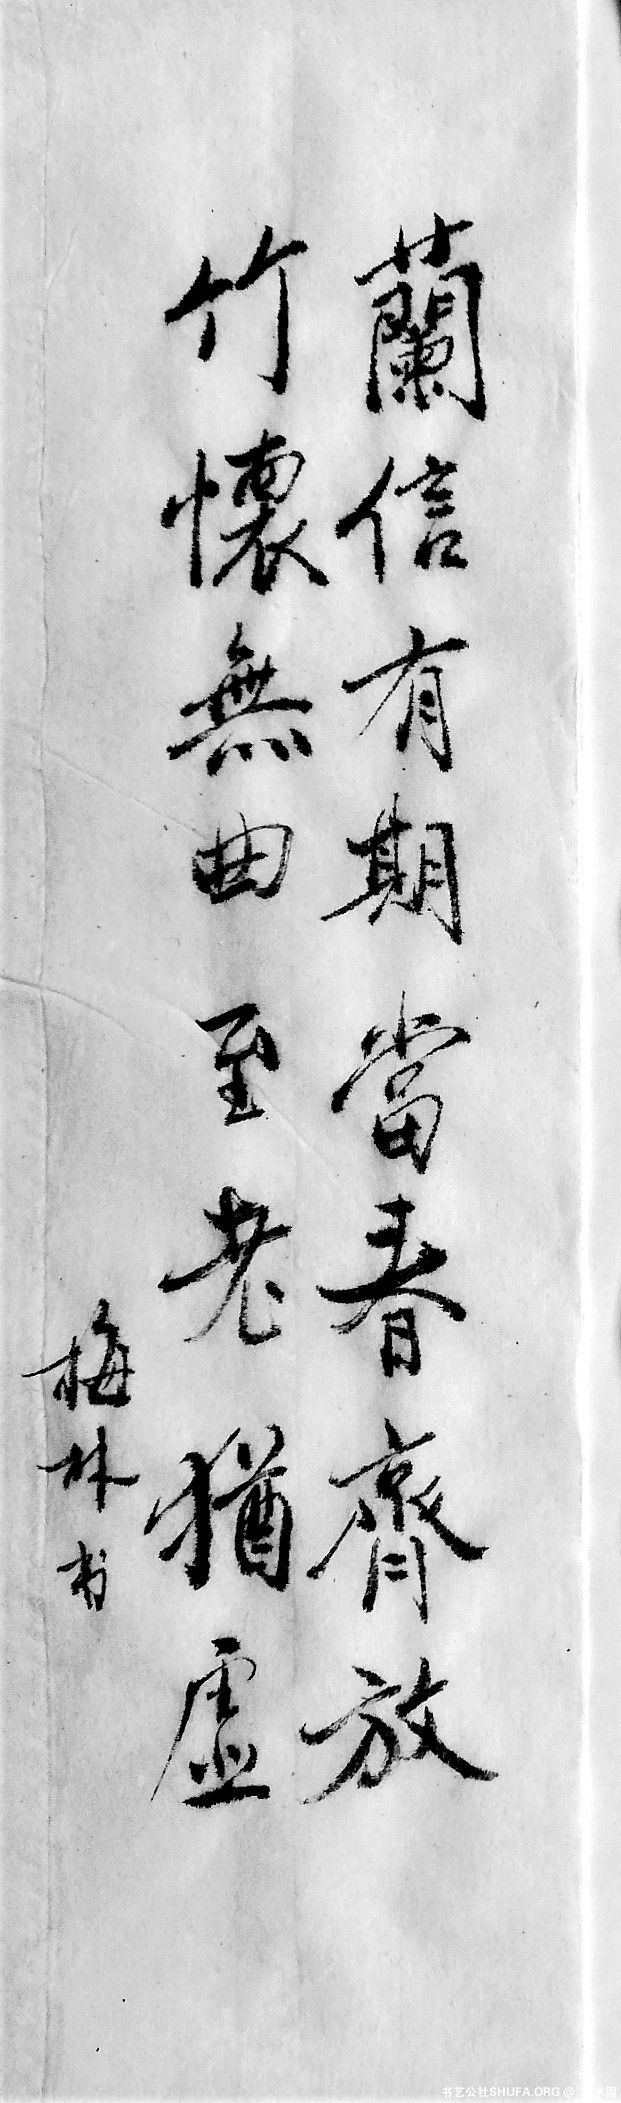 蘭信有期當春齊放
竹懷無曲至老猶虛
梅林书
书艺公社SHUFA.ORG @